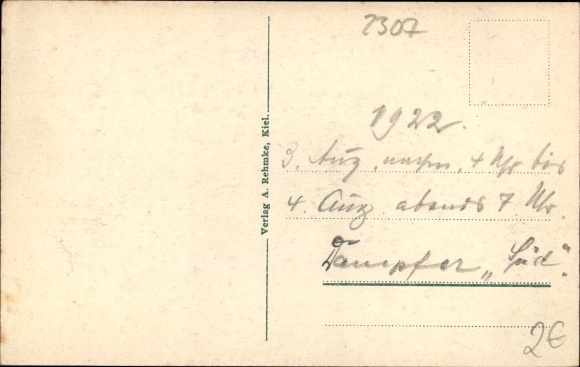 2307
Verlag A. Rehmke, Kiel.
1922.
3. Aug. nachm. 4 Uhr bis
4. Aug abends 7 Uhr.
Dampfer „Süd".
2€